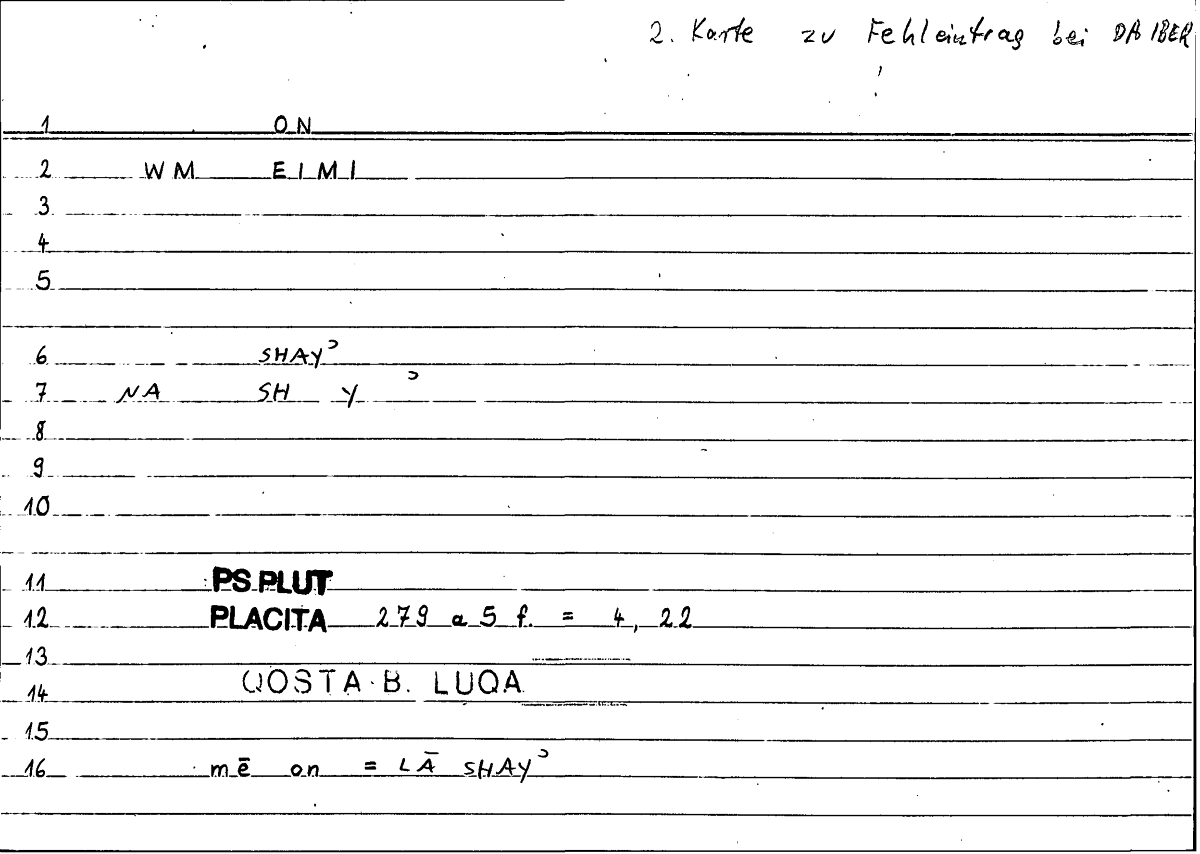 2. Karte zu Fehleintrag bei DAIBER
1 ON
2 WM EIMI
3
4
5
6 SHAYʾ
7 NA SH Y ʾ
8
9
10
11 PS.PLUT
12 PLACITA 279 a 5 f. = 4, 22
13
14 QOSTA B. LUQA
15
16 mē on = LĀ SHAYʾ